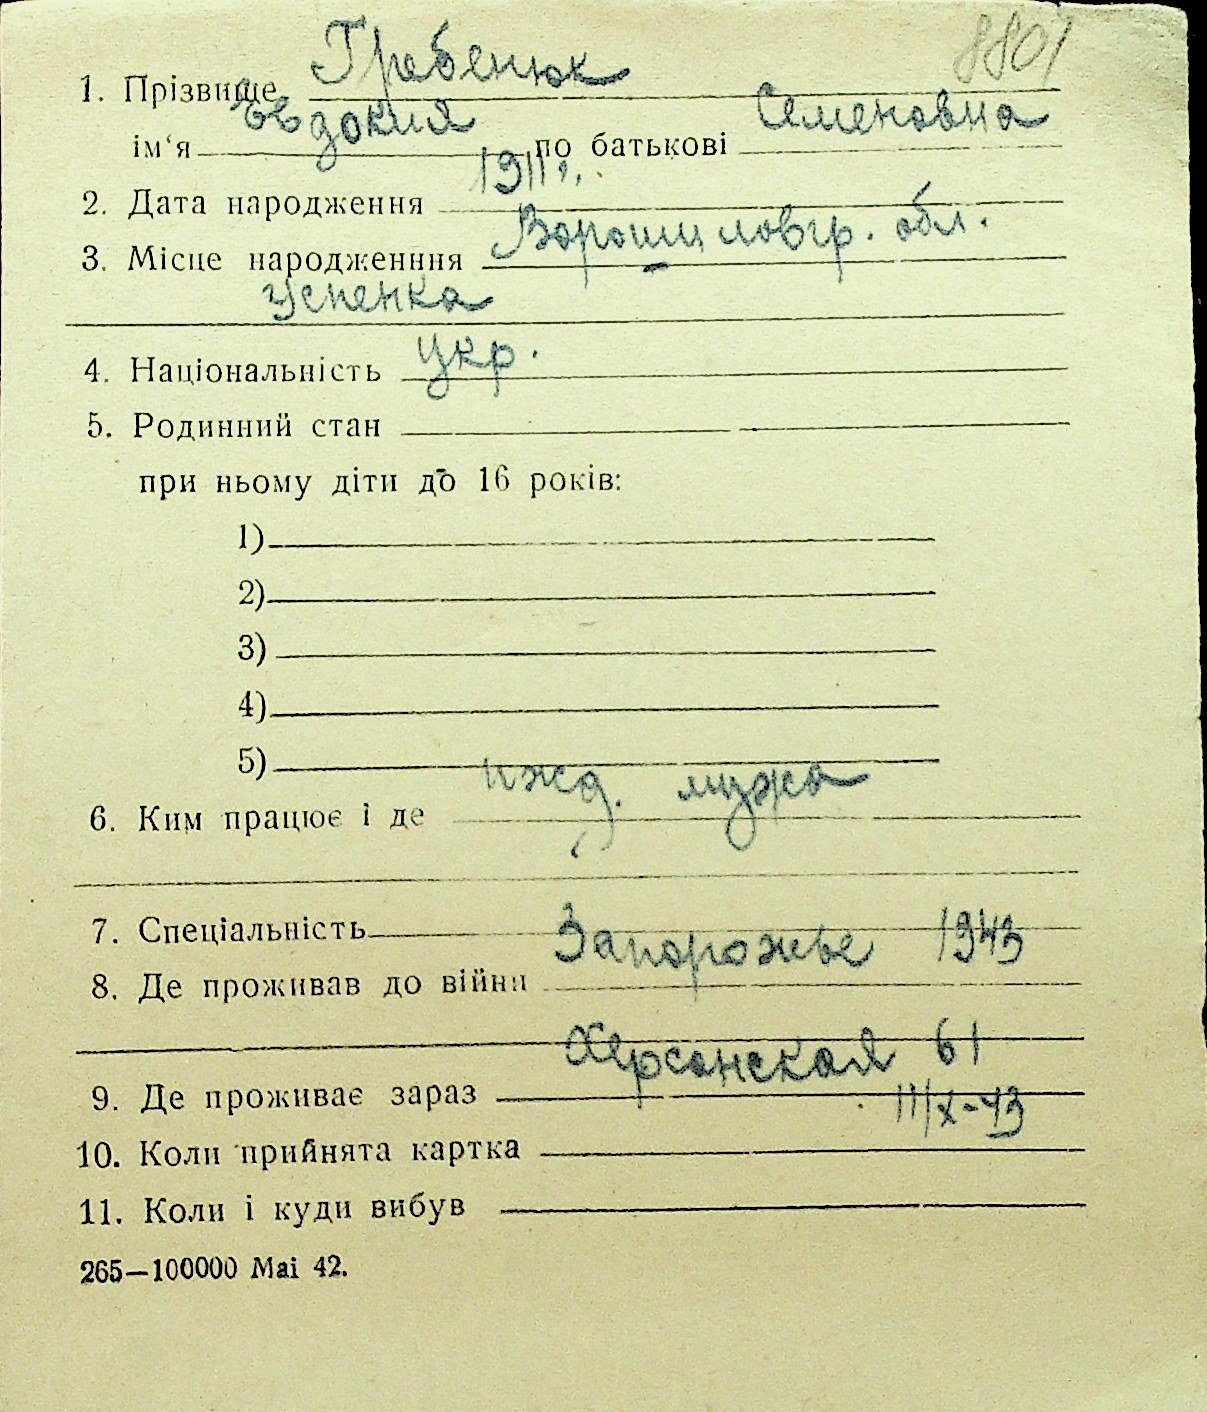 8801
1. Прізвище Гребенюк
ім‘я Евдокия по батькові Семеновна
2. Дата народження 1911г.
3. Місце народженння Ворошиловгр. обл.
Успенка
4. Національність укр.
5. Родинний стан
при ньому діти до 16 років:
1)
2)
3)
4)
5)
6. Ким працює і де ижд. мужа
7. Спеціальність
8. Де проживав до війни Запорожье 1943
9. Де проживає зараз Херсонская 61
10. Коли прийнята картка III/X-43
11. Коли і куди вибув
265—100000 Маі 42.